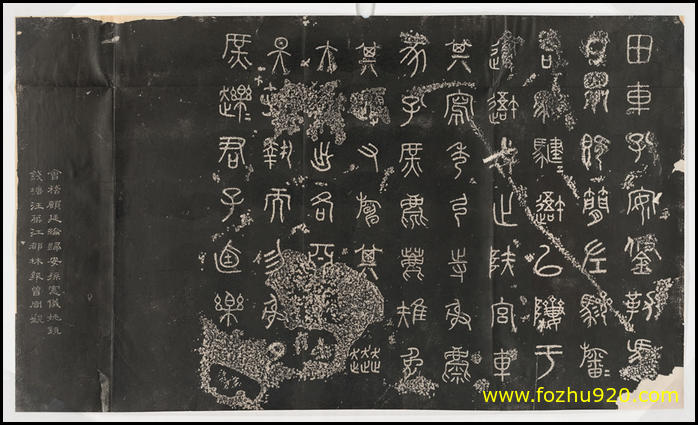 田車孔安鋚勒馬
既簡左驂旛
右驂騝㠯隮于
邍戎止陜宮車
其寫秀弓寺射麋
豕孔庶麀鹿雉兔
其又其
大出各亞
執而勿射
庶趯君子迺樂
會稽顧廷綸歸安孫憲儀
錢塘汪江都林報曾同觀
www.fozhu920.com